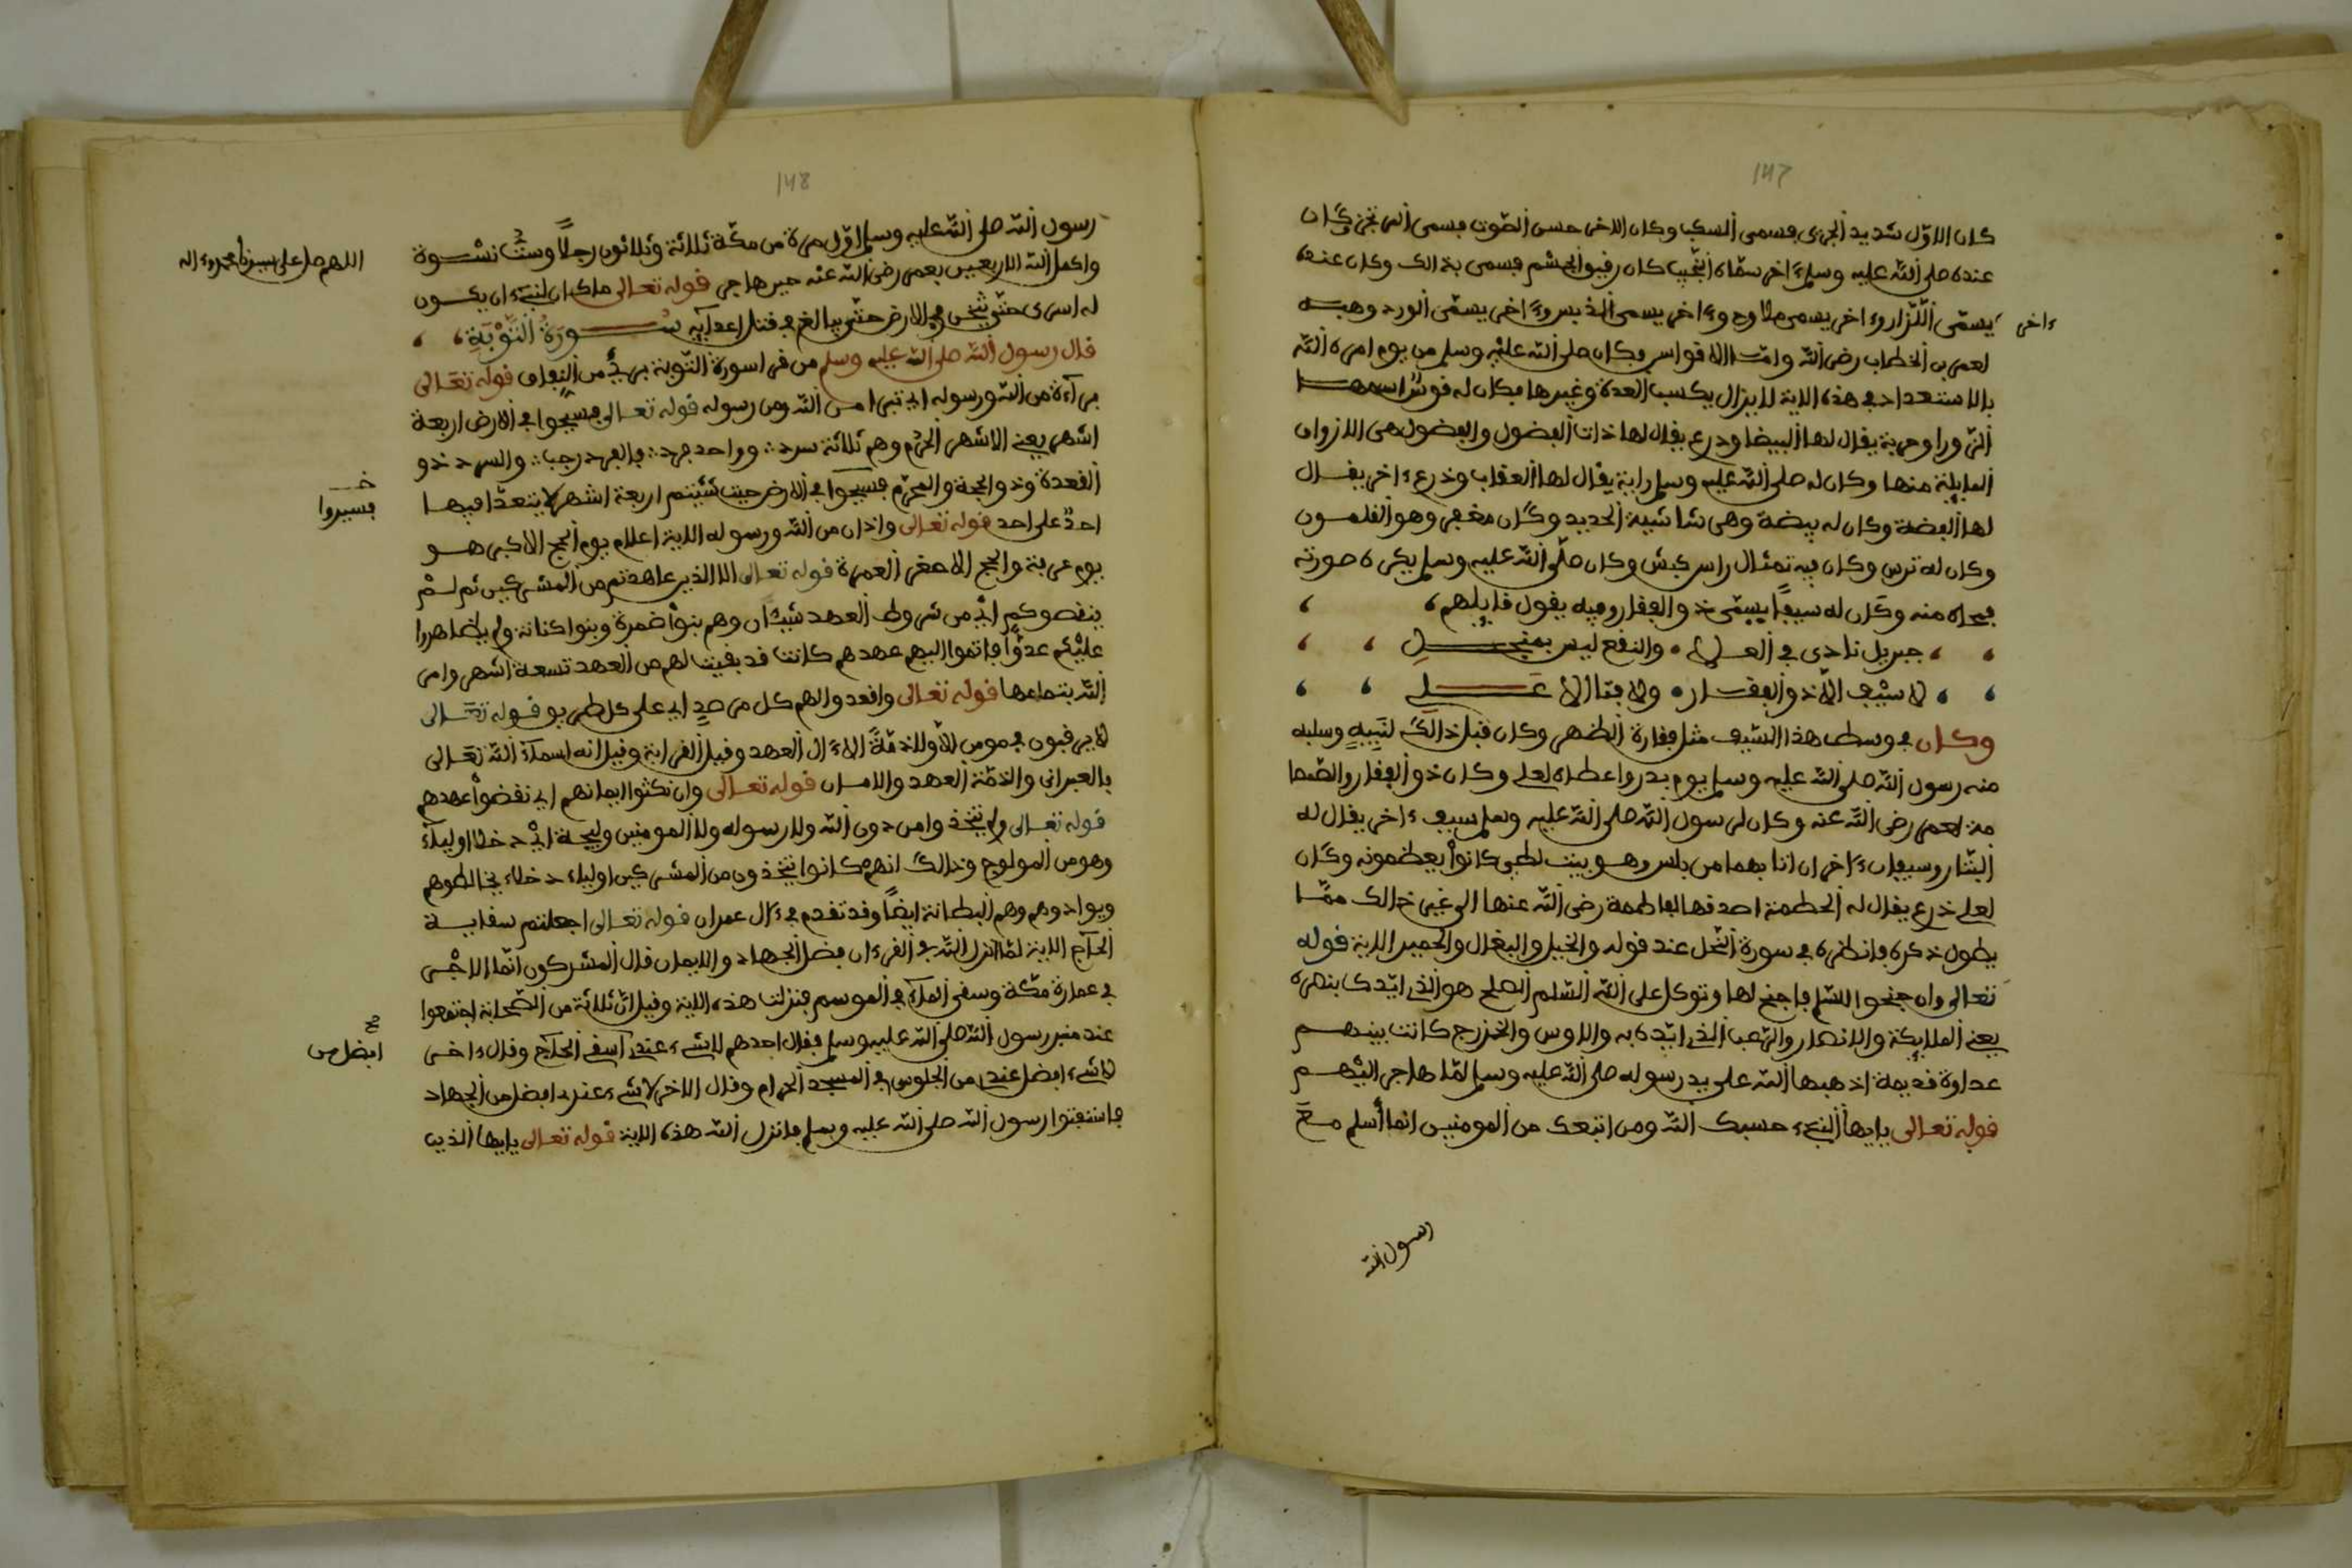 147
كان الاول شديد الجرى فسمى السكب وكان الاخر حسن الصوت فسمى المرتجز وكان
عنده صلى الله عليه وسلم ءاخر سماه النجيب كان رفيو الجسم فسمى بذالك وكان عنده
يسمى اللزاز وءاخر يسمى ملاوح وءاخر يسمى الذيسر وءاخر يسمى الورد وهبه
ءاخر
لعمر بن الخطاب رضى الله وامت الافواس وكان صلى الله عليه وسلم من يوم امره الله
بالاستعداد في هذه الاية لا يزال يكسب العدة وغيرها فكان له فوس اسمها
الزورا وحربة يفال لها البيضا ودرع يفال لها ذات الفضول والفضول هى الازوان
الفابلة منها وكان له صلى الله عليه وسلم راية يفال لها العفاب ودرع ءاخر يفال
لها الفضة وكان له بيضة وهى شاشية الحديد وكان مغفر وهو الفلمون
وكان له ترس وكان فيه تمثال راس كبش وكان صلى الله عليه وسلم يكره صورته
فمحاه منه وكان له سيفا يسمى ذو الففار وفيه يفول فايلهم
جبريل نادى في العلى والنفع ليس بمنجل
لا سيف الا ذو الففار ولا فتا الا علي
وكان في وسط هذا السيف مثل ففارة الظهر وكان فبل ذالك لنبيه وسلبه
منه رسول الله صلى الله عليه وسلم يوم بدر واعطاه لعلي وكان ذو الففار والصمصا
مة لعمر رضى الله عنه وكان لرسول الله صلى الله عليه وسلم سيف ءاخر يفال له
البتار وسيفان ءاخران اتا بهما من بلس وهو بيت لطي كانوا يعظمونه وكان
لعلي درع يفال له الحطمة اصدفها لفاطمة رضى الله عنها الى غير ذالك مما
يطول ذكره فانظره في سورة النحل عند فوله والخيل والبغال والحمير الاية فوله
تعالى وان جنحوا للسلم فاجنح لها وتوكل على الله السلم الصلح هو الذي ايدك بنصره
يعني الملايكة والانصار والرعب الذي ايده به والاوس والخزرج كانت بينهم
عداوة فديمة اذهبها الله على يد رسوله صلى الله عليه وسلم لما هاجر اليهم
فوله تعالى يايها النبيء حسبك الله ومن اتبعك من المومنين انما أسلم مع
رسول الله
148
رسول الله صلى الله عليه وسلم اول مرة من مكة ثلاثة وثلاثون رجلا وست نسوة
اللهم صل على سيدنا محمد وءاله
واكمل الله الاربعين بعمر رضى الله عنه حين هاجر فوله تعالى ما كان لنبيء ان يكون
له اسرى حتى يثخن في الارض حتى يبالغ في فتل اعدايه سورة التوبة
فال رسول الله صلى الله عليه وسلم من فرا سورة التوبة بريء من النفاف فوله تعالى
برآءة من الله ورسوله اي تبرا من الله ومن رسوله فوله تعالى فسيحوا في الارض اربعة
اشهر يعني الاشهر الحرم وهم ثلاثة سرد وواحد فرد فالفرد رجب والسرد ذو
الفعدة وذو الحجة والمحرم فسيحوا في الارض حيث شئتم اربعة اشهر لا يتعدا فيها
خـ
فسيروا
احد على احد فوله تعالى واذان من الله ورسوله الاية اعلام يوم الحج الاكبر هو
يوم عرفة والحج الاصغر العمرة فوله تعالى الا الذين عاهدتم من المشركين ثم لم
ينفصوكم اي من شروط العهد شيئا وهم بنوا ضمرة وبنوا كنانة ولم يظاهروا
عليكم عدوا فاتموا اليهم عهدهم كانت فد بفيت لهم من العهد تسعة اشهر وامر
الله بتمامها فوله تعالى وافعدوا لهم كل مرصد اي على كل طريو فوله تعالى
لا يرفبون في مومن الا ولا ذمة الاءال العهد وفيل الفرابة وفيل انه اسم الله تعالى
بالعبرانى والذمة العهد والامان فوله تعالى وان نكثوا ايمانهم اي نفضوا عهدهم
فوله تعالى ولم يتخذوا من دون الله ولا رسوله ولا المومنين وليجة اي دخلا اولياء
وهو من المولوج وذالك انهم كانوا يتخذون من المشركين اولياء دخلاء يخالطوهم
ويوادوهم وهم البطانة ايضا وفد تفدم في ءال عمران فوله تعالى اجعلتم سفاية
الحآج الاية لما انزل الله في الفرءان فضل الجهاد والايمان فال المشركون انما الاجر
في عمارة مكة وسفي المآء في الموسم فنزلت هذه الاية وفيل ان ثلاثة من الصحابة اجتمعوا
عند منبر رسول الله صلى الله عليه وسلم ففال احدهم لا شيء عندي اسفى الحآج وفال ءاخر
صح
افضل من
لا شيء افضل عندي من الجلوس في المسجد الحرام وفال الاخر لا شيء عندي افضل من الجهاد
فاستفتوا رسول الله صلى الله عليه وسلم فانزل الله هذه الاية فوله تعالى يايها الذين